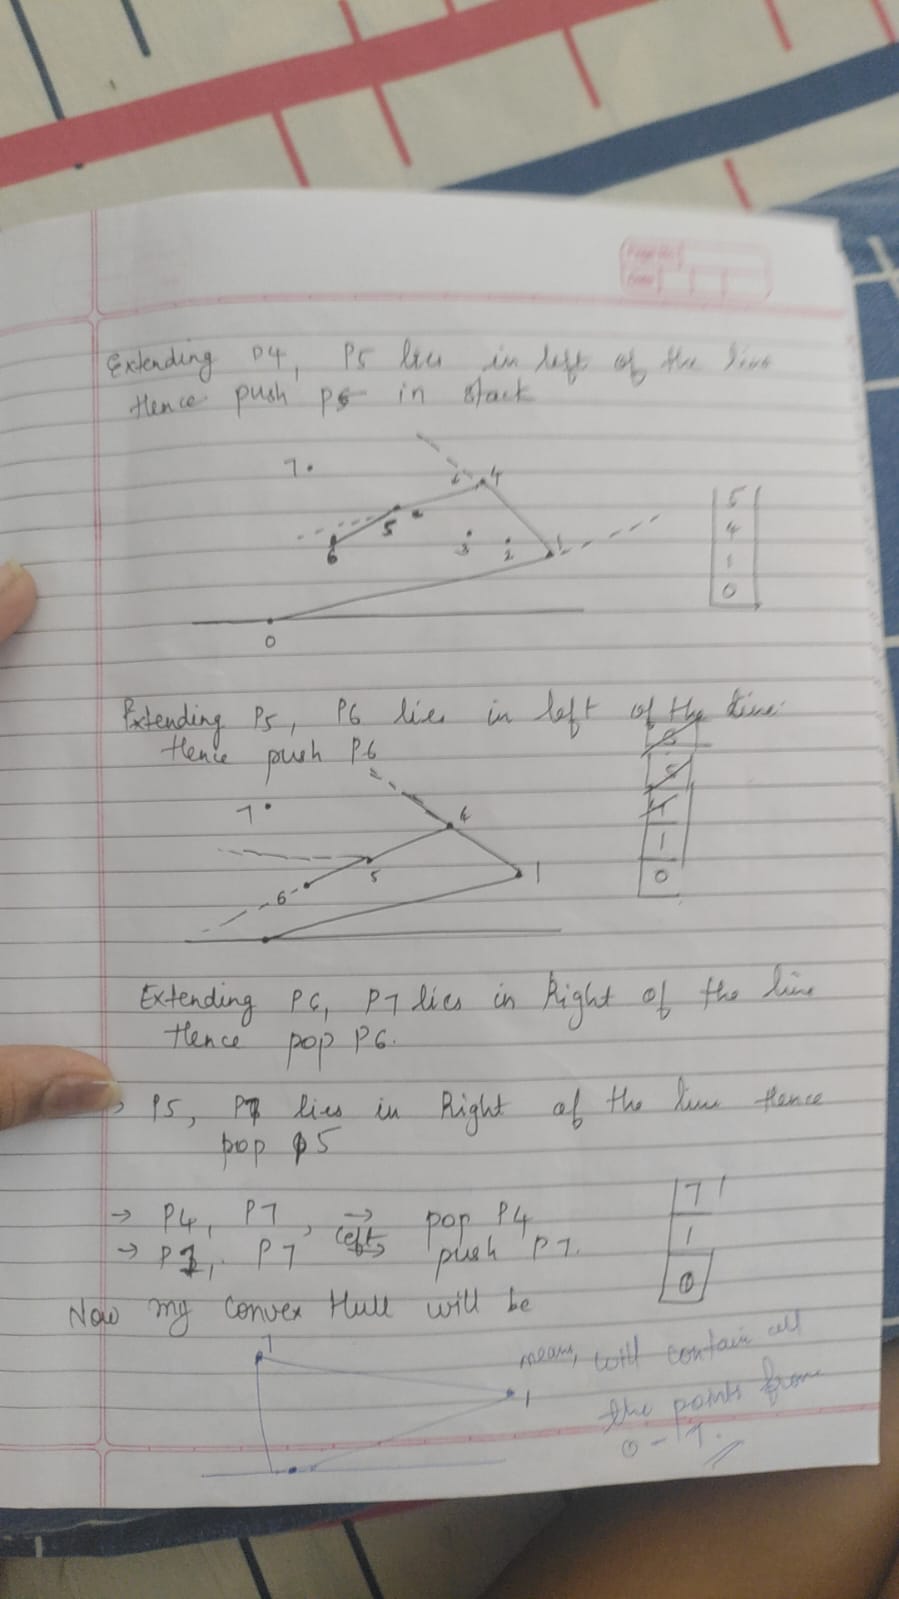 Page No.
Date
Extending P4, P5 lies in left of the line
Hence push P5 in stack
7.
4
5
3
2
1
6
0
5
4
1
0
Extending P5, P6 lies in left of the line.
Hence push P6
7
4
5
6
1
6
5
4
1
0
Extending P6, P7 lies in Right of the line
Hence pop P6.
→ P5, P7 lies in Right of the line Hence
pop P5
→ P4, P7, → pop P4
→ P1, P7 left → push P7.
7
1
0
Now my Convex Hull will be
7
1
means, will contain all
the points from
0 - 7.